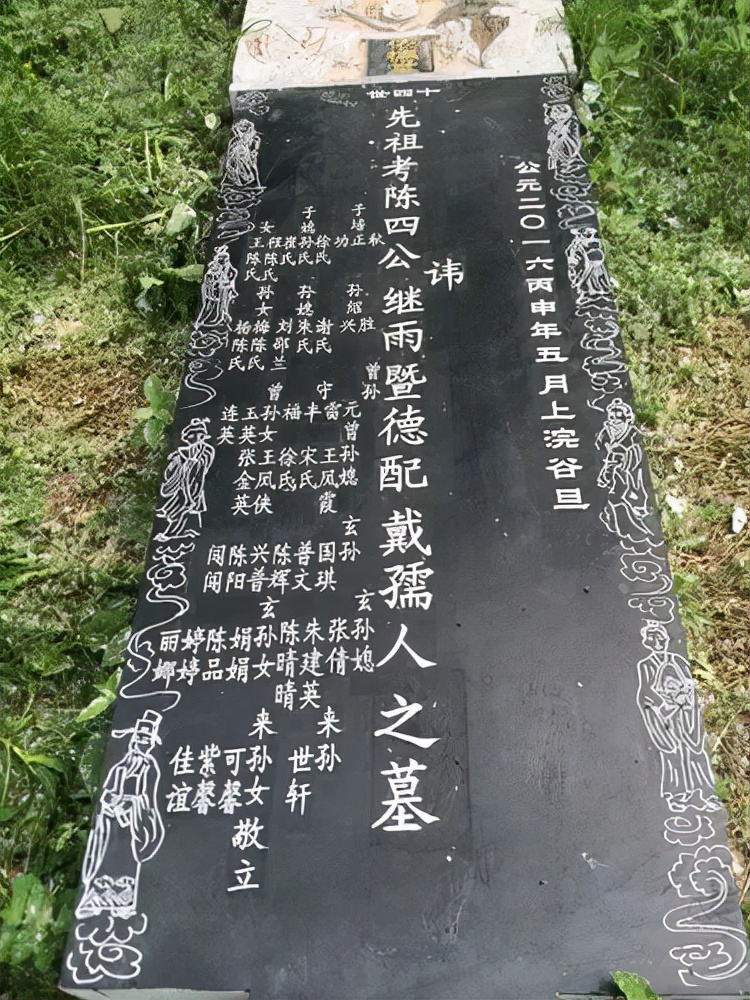 十四世
公元二〇一六丙申年五月上浣谷旦
讳
先祖考陈四公继雨暨德配戴孺人之墓
子
正秋
功
子媳
徐氏
孙氏
崔氏
女
程陈氏
王陈氏
孙
绍
胜
兴
孙媳
谢氏
朱氏
刘邵兰
孙女
梅陈氏
杨陈氏
曾孙
守
元
富
丰
福
曾孙女
玉英
连英
曾孙媳
王凤霞
宋氏
徐氏
王凤侠
张金英
玄孙
国琪
普文
陈辉
兴普
陈阳
闯闯
玄孙媳
张倩
朱建英
陈晴晴
玄孙女
娟娟
陈品
婷婷
丽娜
来孙
世轩
来孙女
可馨
紫馨
佳谊
敬立